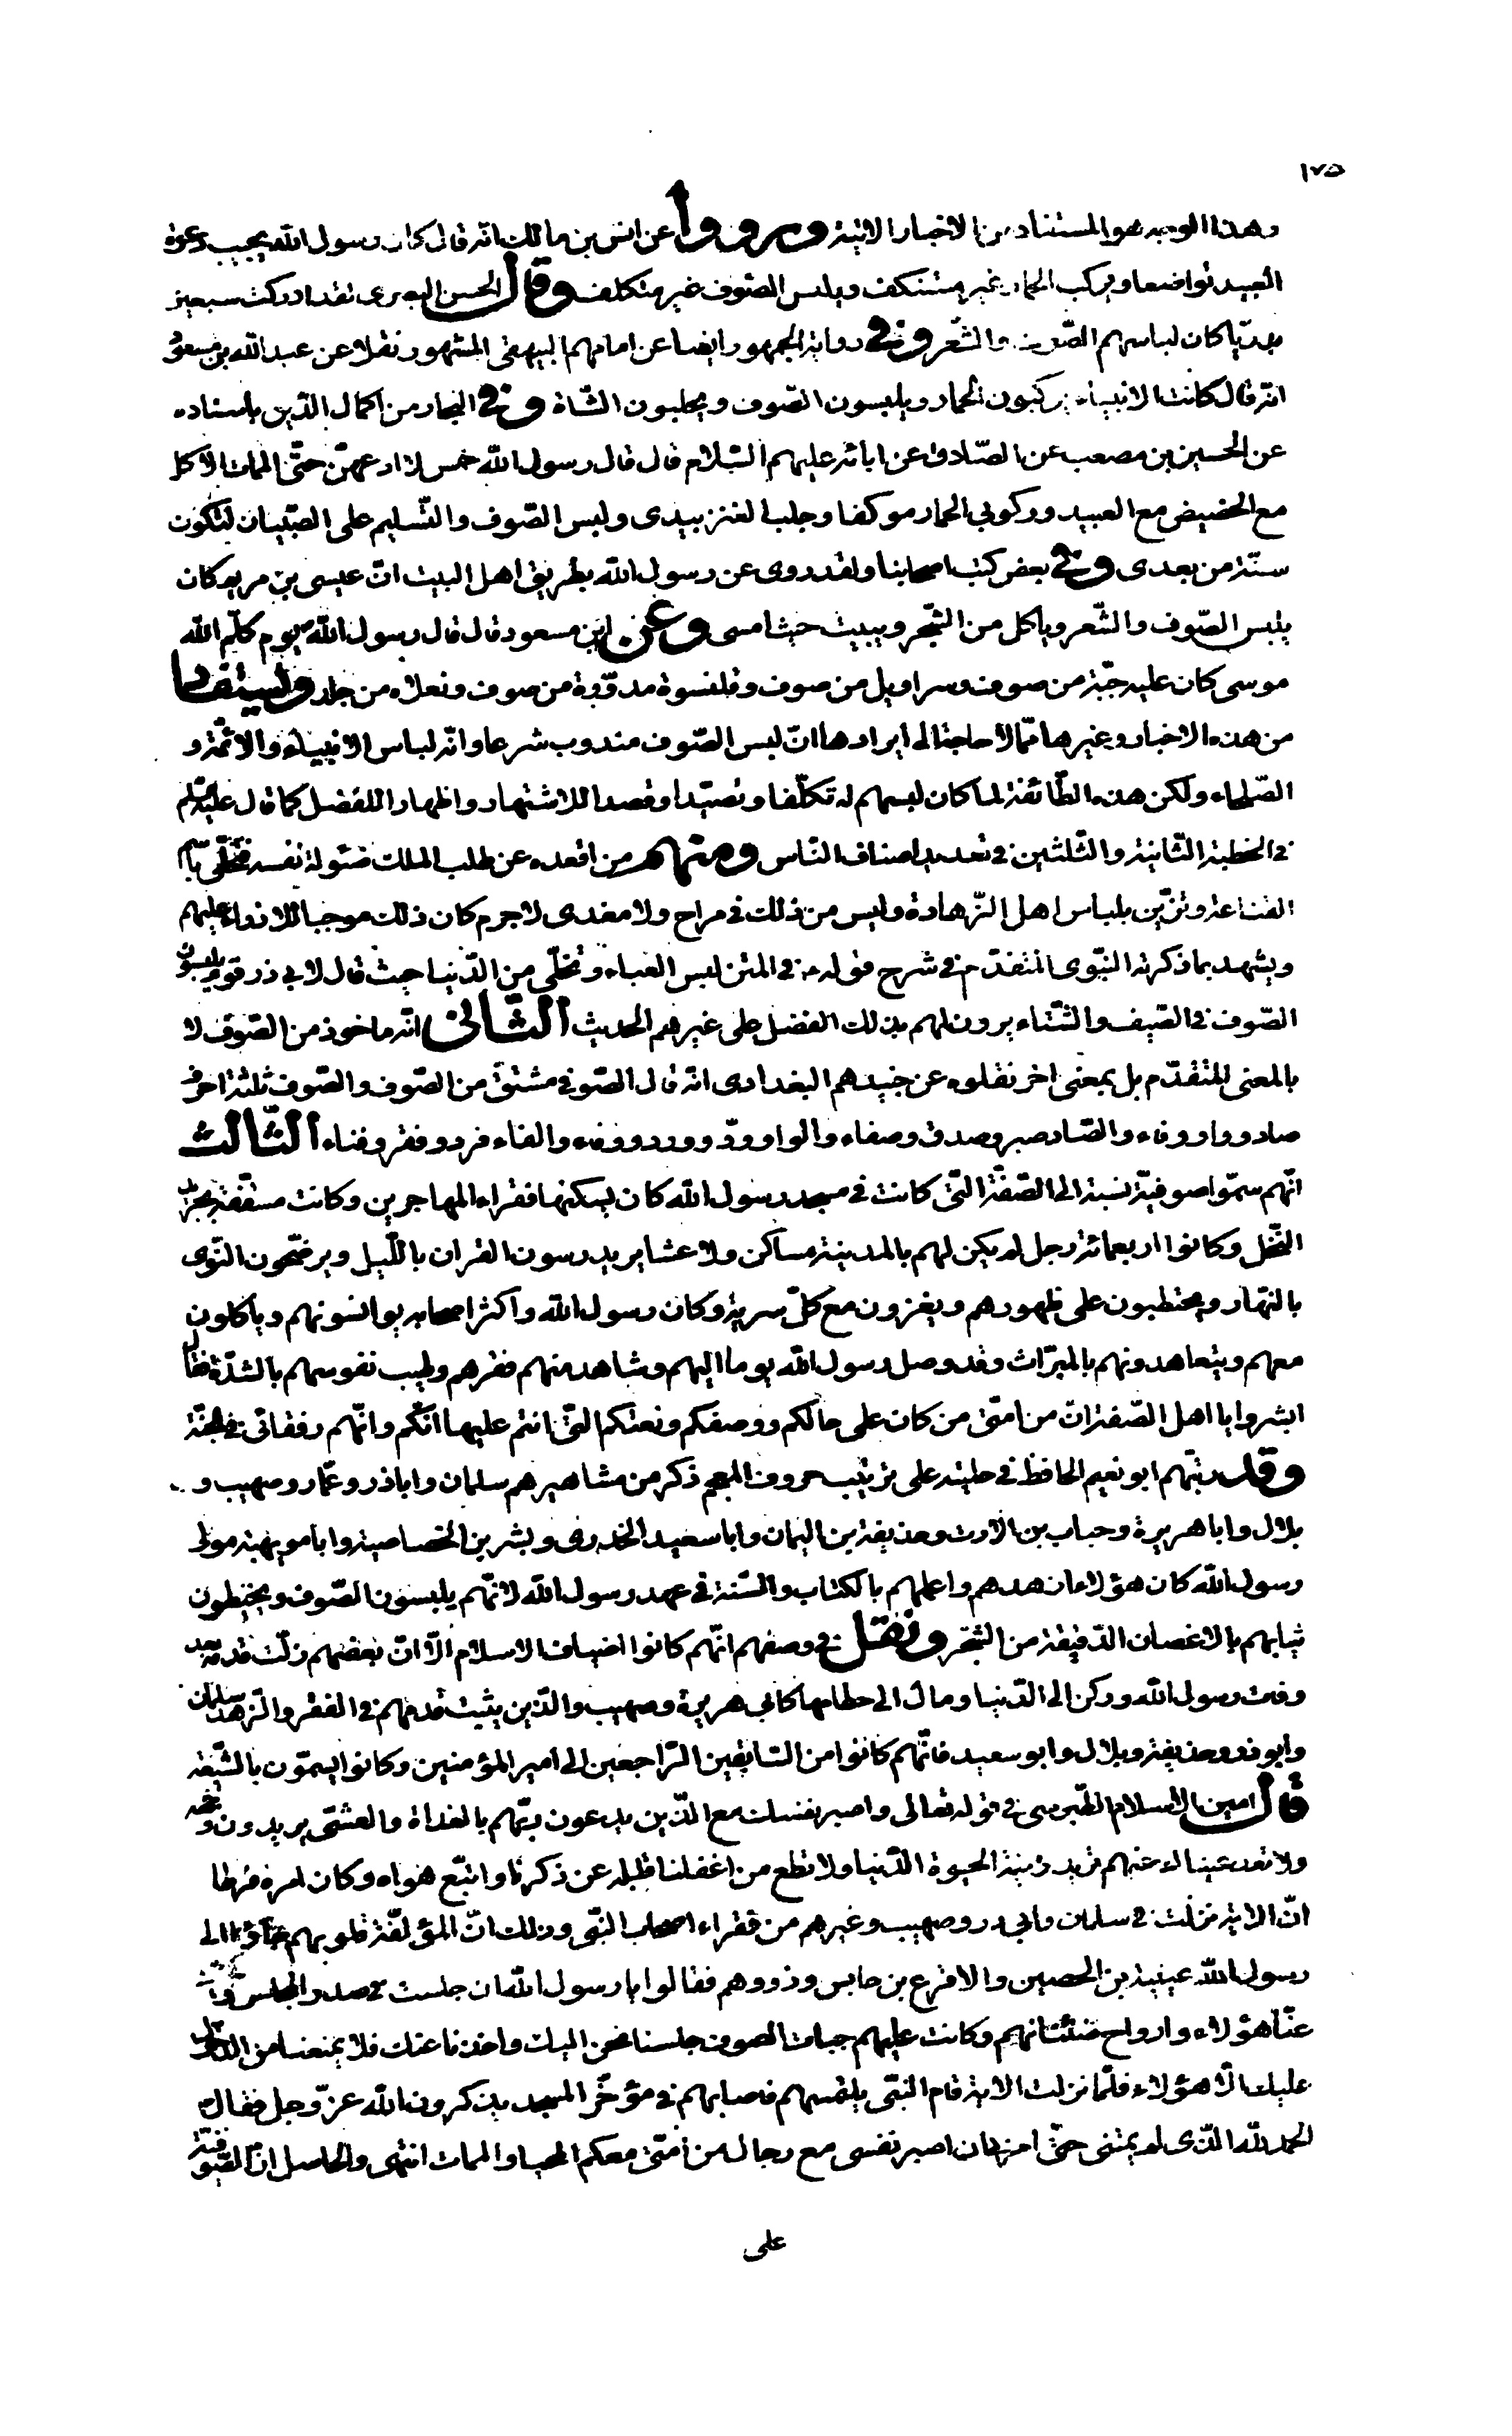 ١٧٥
وهذا الوجه هو المستفاد من الاخبار الاتية ورووا عن انس بن مالك انه قال كان رسول الله يجيب دعوة
العبيد تواضعا ويركب الحمار غير مستنكف ويلبس الصوف غير متكلف وقال الحسن البصرى لقد ادركت سبعين
بدريا كان لباسهم الصوف والشعر وفى رواية الجمهور ايضا عن امامهم البيهقى المشهور نقلا عن عبد الله بن مسعود
انه قال كانت الانبياء يركبون الحمار ويلبسون الصوف ويحلبون الشاة وفى البحار من اكمال الدين باسناده
عن الحسين بن مصعب عن الصادق عن ابائه عليهم السلام قال قال رسول الله خمس لا ادعهن حتى الممات الاكل
مع الحضيض مع العبيد وركوبى الحمار موكفا وحلب العنز بيدى ولبس الصوف والتسليم على الصبيان لتكون
سنة من بعدى وفى بعض كتب اصحابنا ولقد روى عن رسول الله بطريق اهل البيت ان عيسى بن مريم كان
يلبس الصوف والشعر وياكل من الشجر ويبيت حيث امسى وعن ابن مسعود قال قال رسول الله يوم كلم الله
موسى كان عليه جبة من صوف وسراويل من صوف وقلنسوة مدورة من صوف ونعلاه من جلد وليستفاد
من هذه الاخبار وغيرها مما لا حاجة الى ايرادها ان لبس الصوف مندوب شرعا وانه لباس الانبياء والائمة و
الصلحاء ولكن هذه الطائفة لما كان لبسهم له تكلفا وتصيدا وقصدا للاشتهار واظهارا للفضل كما قال عليه السلم
فى الخطبة الثانية والثلثين فى تعديد اصناف الناس ومنهم من اقعده عن طلب الملك ضئولة نفسه فتحلى باسم
القناعة وتزين بلباس اهل الزهادة وليس من ذلك فى مراح ولا مغدى لا جرم كان ذلك موجبا للازراء عليهم
ويشهد بما ذكرته النبوى المتقدم فى شرح قوله فى المتن لبس العباء وتخلى من الدنيا حيث قال لابى ذر قوم يلبسون
الصوف فى الصيف والشتاء يرون لهم بذلك الفضل على غيرهم الحديث الثانى انه ماخوذ من الصوف لا
بالمعنى المتقدم بل بمعنى اخر نقلوه عن جنيدهم البغدادى انه قال الصوفى مشتق من الصوف والصوف ثلثة احرف
صاد وواو وفاء والصاد صبر وصدق وصفاء والواو ود وورد ووفاء والفاء فرد وفقر وفناء الثالث
انهم سموا صوفية نسبة الى الصفة التى كانت فى مسجد رسول الله كان يسكنها فقراء المهاجرين وكانت مسقفة بجريد
النخل وكانوا اربعمائة رجل لم يكن لهم بالمدينة مساكن ولا عشاير يدرسون القران بالليل ويرضخون النوى
بالنهار ويحتطبون على ظهورهم ويغزون مع كل سرية وكان رسول الله واكثر اصحابه يوانسونهم وياكلون
معهم ويتعاهدونهم بالمبراث وقد وصل رسول الله يوما اليهم وشاهد منهم فقرهم وطيب نفوسهم بالشدة فقال
ابشروا يا اهل الصفة ان من امتى من كان على حالكم ووصفكم ونعتكم التى انتم عليها انكم وانهم رفقائى فى الجنة
وقد رتبهم ابو نعيم الحافظ فى حليته على ترتيب حروف المعجم ذكر من مشاهيرهم سلمان واباذر وعمار وصهيب و
بلال وابا هريرة وحباب بن الارت وحذيفة بن اليمان وابا سعيد الخدرى وبشر بن الخصاصية وابا مويهبة مولى
رسول الله كان هؤلاء ازهدهم واعلمهم بالكتاب والسنة فى عهد رسول الله لانهم يلبسون الصوف ويخيطون
ثيابهم بالاغصان الدقيقة من الشجر ونقل فى وصفهم انهم كانوا اضياف الاسلام الا ان بعضهم زلت قدمه بعد
وفات رسول الله وركن الى الدنيا ومال الى حطامها كابى هريرة وصهيب والذين يثبت قدمهم فى الفقر والزهد سلمان
وابو ذر وحذيفة وبلال وابو سعيد فانهم كانوا من السابقين الراجعين الى امير المؤمنين وكانوا يسمون بالشيعة
قال امين الاسلام الطبرسى فى قوله تعالى واصبر نفسك مع الذين يدعون ربهم بالغداة والعشى يريدون وجهه
ولا تعد عيناك عنهم تريد زينة الحيوة الدنيا ولا تطع من اغفلنا قلبه عن ذكرنا واتبع هواه وكان امره فرطا
ان الاية نزلت فى سلمان وابى ذر وصهيب وغيرهم من فقراء اصحاب النبى وذلك ان المؤلفة قلوبهم جاؤا الى
رسول الله عيينة بن الحصين والاقرع بن حابس وذووهم فقالوا يا رسول الله ان جلست فى صدر المجلس
عنا هؤلاء وارواح صنانهم وكانت عليهم جبات الصوف جلسنا نحن اليك واخذنا عنك فلا يمنعنا من الدخول
عليك الا هؤلاء فلما نزلت الاية قام النبى يلتمسهم فاصابهم فى مؤخر المسجد يذكرون الله عز وجل فقال
الحمد لله الذى لم يمتنى حتى امرنى ان اصبر نفسى مع رجال من امتى معكم المحيا والممات انتهى والحاصل ان الصوفية
على